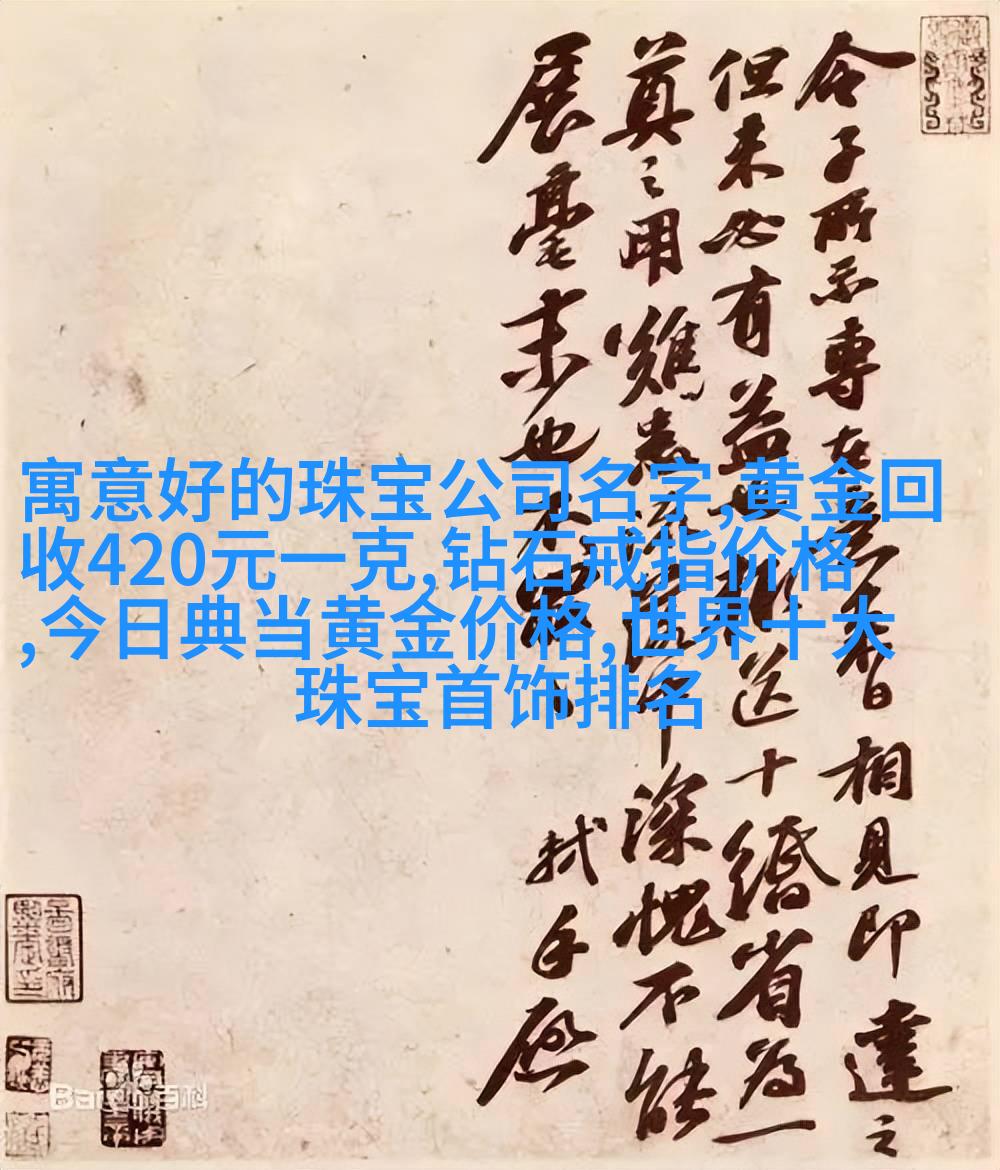 寓意好的珠宝公司名字,黄金回
收420元一克,钻石戒指价格
,今日典当黄金价格,世界十大
珠宝首饰排名
令子所示專在意來日相見即達之
但未必有益也送十緡省為一
奠之用難患流落中深愧不能
展毫末也不
軾手啟
Bai 百科